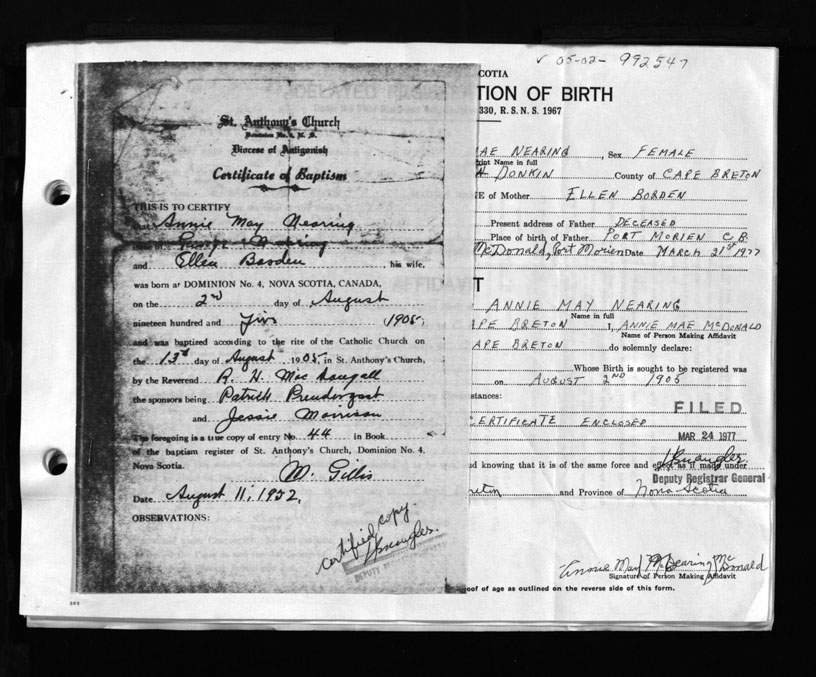 V 05-02- 992547
SCOTIA
TION OF BIRTH
330, R. S. N. S. 1967
MAE NEARING, Sex FEMALE
Print Name in full
DONKIN County of CAPE BRETON
E of Mother ELLEN BORDEN
Present address of Father DECEASED
Place of birth of Father PORT MORIEN C B
McDonald, Port Morien Date MARCH 21st 1977
T
ANNIE MAY NEARING
Name in full
APE BRETON I, ANNIE MAE McDONALD
Name of Person Making Affidavit
APE BRETON do solemnly declare:
Whose Birth is sought to be registered was
on AUGUST 2ND 1905
stances:
CERTIFICATE ENCLOSED
FILED
MAR 24 1977
nd knowing that it is of the same force and effect as if made under
Deputy Registrar General
reton and Province of Nova Scotia
Annie May Nearing McDonald
Signature of Person Making Affidavit
oof of age as outlined on the reverse side of this form.
St. Anthony's Church
Dominion No. 4, N. S.
Diocese of Antigonish
Certificate of Baptism
THIS IS TO CERTIFY
that Annie May Nearing
George Nearing
and Ellen Borden his wife,
was born at DOMINION No. 4, NOVA SCOTIA, CANADA,
on the 2nd day of August
nineteen hundred and five (1905)
and was baptized according to the rite of the Catholic Church on
the 13th day of August 1905 in St. Anthony's Church,
by the Reverend R. H. MacDougall
the sponsors being Patrick Prendergast
and Jessie Morrison
The foregoing is a true copy of entry No. 44 in Book
of the baptism register of St. Anthony's Church, Dominion No. 4.
Nova Scotia.
M. Gillis
Date August 11, 1952.
OBSERVATIONS:
certified copy
DEPUTY